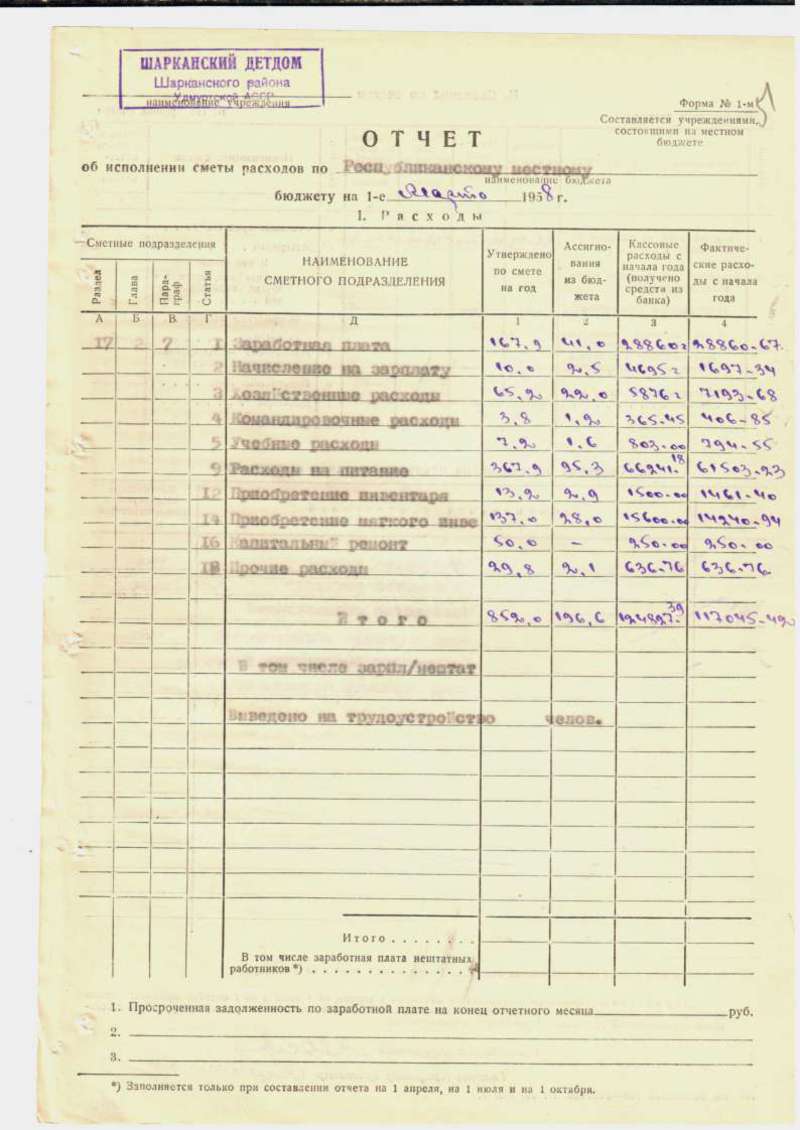 ШАРКАНСКИЙ ДЕТДОМ
Шарканского района
Удмуртской АССР
наименование учреждения
Форма № 1-м
Составляется учреждениями,
состоящими на местном
бюджете
ОТЧЕТ
об исполнении сметы расходов по Республиканскому местному
наименование бюджета
бюджету на 1-е марта 1958 г.
I. Расходы
Сметные подразделения
Раздел Глава Пара-граф Статья
НАИМЕНОВАНИЕ СМЕТНОГО ПОДРАЗДЕЛЕНИЯ
Утверждено по смете на год
Ассигно-вания из бюд-жета
Кассовые расходы с начала года (получено средств из банка)
Фактиче-ские расхо-ды с начала года
А Б В Г Д 1 2 3 4
17 2 7 1 Заработная плата 167,9 41,0 28860 28860-67
2 Начисление на зарплату 10.0 2,5 4695 1697-34
3 Хозяйственные расходы 65,2 22,0 5876 7193-68
4 Командировочные расходы 3,8 1,2 365-45 406-85
5 Учебные расходы 7,2 1,6 803-00 794-55
9 Расходы на питание 367,9 95,3 66241-18 61503-23
12 Приобретение инвентаря 13,2 2,9 1500-00 1461-40
14 Приобретение мягкого инве 137,0 28,0 15600-00 14240-94
16 Капитальный ремонт 50,0 – 250-00 250-00
18 Прочие расходы 29,8 2,1 636-76 636-76
Итого 852,0 196,6 124827-39 117045-42
В том числе зарпл/нештат
Выведено на трудоустройство челов.
Итого . . . . . . . .
В том числе заработная плата нештатных
работников *) . . . . . . . . . . . . . .
1. Просроченная задолженность по заработной плате на конец отчетного месяца руб.
2.
3.
*) Заполняется только при составлении отчета на 1 апреля, на 1 июля и на 1 октября.